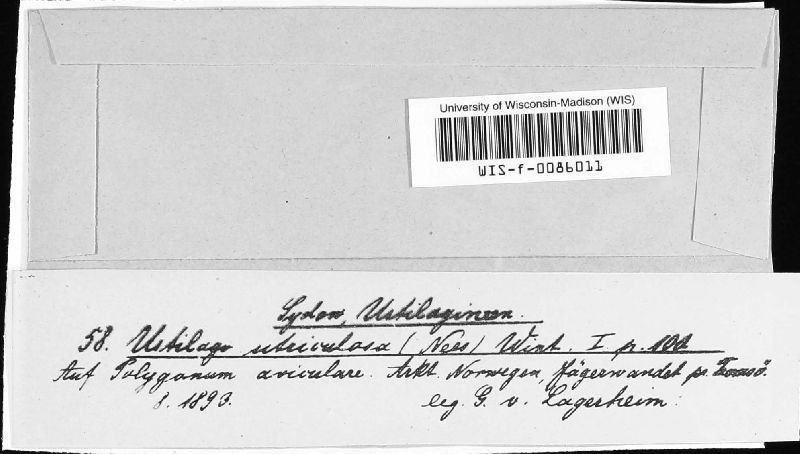 University of Wisconsin-Madison (WIS)
WIS-f-0086011
Sydow, Ustilagineen.
58. Ustilago utriculosa (Nees) Wint. I p. 100
Auf Polygonum aviculare. Arkt. Norwegen, Fägerwandet pr. Tromsö.
8. 1893. leg. G. v. Lagerheim.